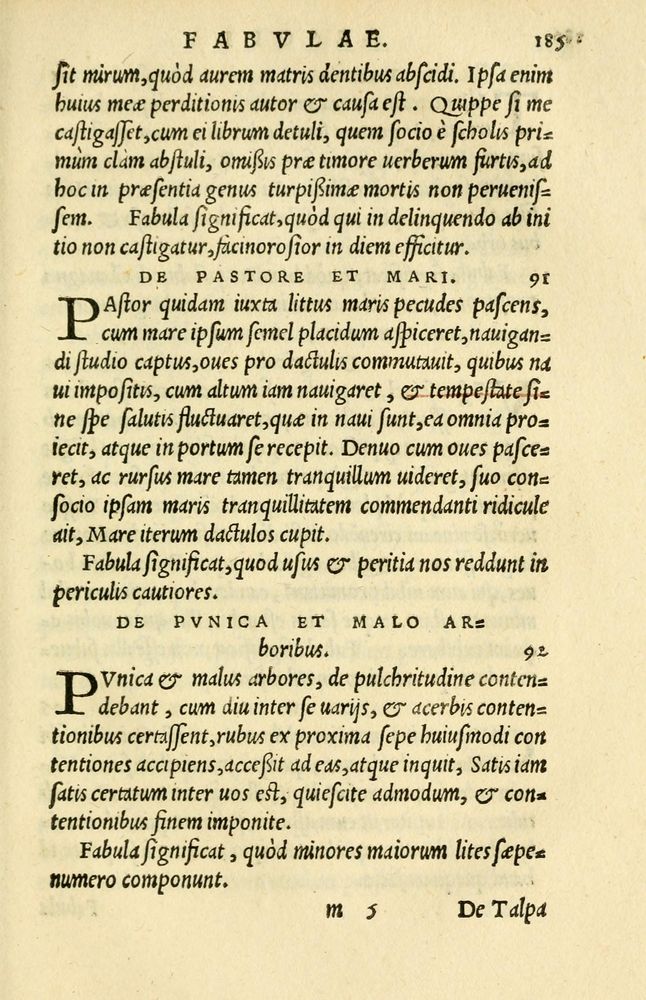 FABVLAE. 185
sit mirum, quòd aurem matris dentibus abscidi. Ipsa enim
huius meæ perditionis autor & causa est. Quippe si me
castigasset, cum ei librum detuli, quem socio è scholis pri=
mùm clàm abstuli, omißis præ timore uerberum furtis, ad
hoc in præsentia genus turpißimæ mortis non peruenis=
sem. Fabula significat, quòd qui in delinquendo ab ini
tio non castigatur, facinorosior in diem efficitur.
DE PASTORE ET MARI. 91
PAstor quidam iuxta littus maris pecudes pascens,
cum mare ipsum semel placidum aspiceret, nauigan=
di studio captus, oues pro dactulis commutauit, quibus na
ui impositis, cum altum iam nauigaret, & tempestate si=
ne spe salutis fluctuaret, quæ in naui sunt, ea omnia pro
iecit, atque in portum se recepit. Denuo cum oues pasce=
ret, ac rursus mare tamen tranquillum uideret, suo con=
socio ipsam maris tranquillitatem commendanti ridicule
ait, Mare iterum dactulos cupit.
Fabula significat, quod usus & peritia nos reddunt in
periculis cautiores.
DE PVNICA ET MALO AR=
boribus. 92
PVnica & malus arbores, de pulchritudine conten=
debant, cum diu inter se uarijs, & acerbis conten=
tionibus certassent, rubus ex proxima sepe huiusmodi con
tentiones accipiens, acceßit ad eas, atque inquit, Satis iam
satis certatum inter uos est, quiescite admodum, & con=
tentionibus finem imponite.
Fabula significat, quòd minores maiorum lites sæpe=
numero componunt.
m 5 De Talpa